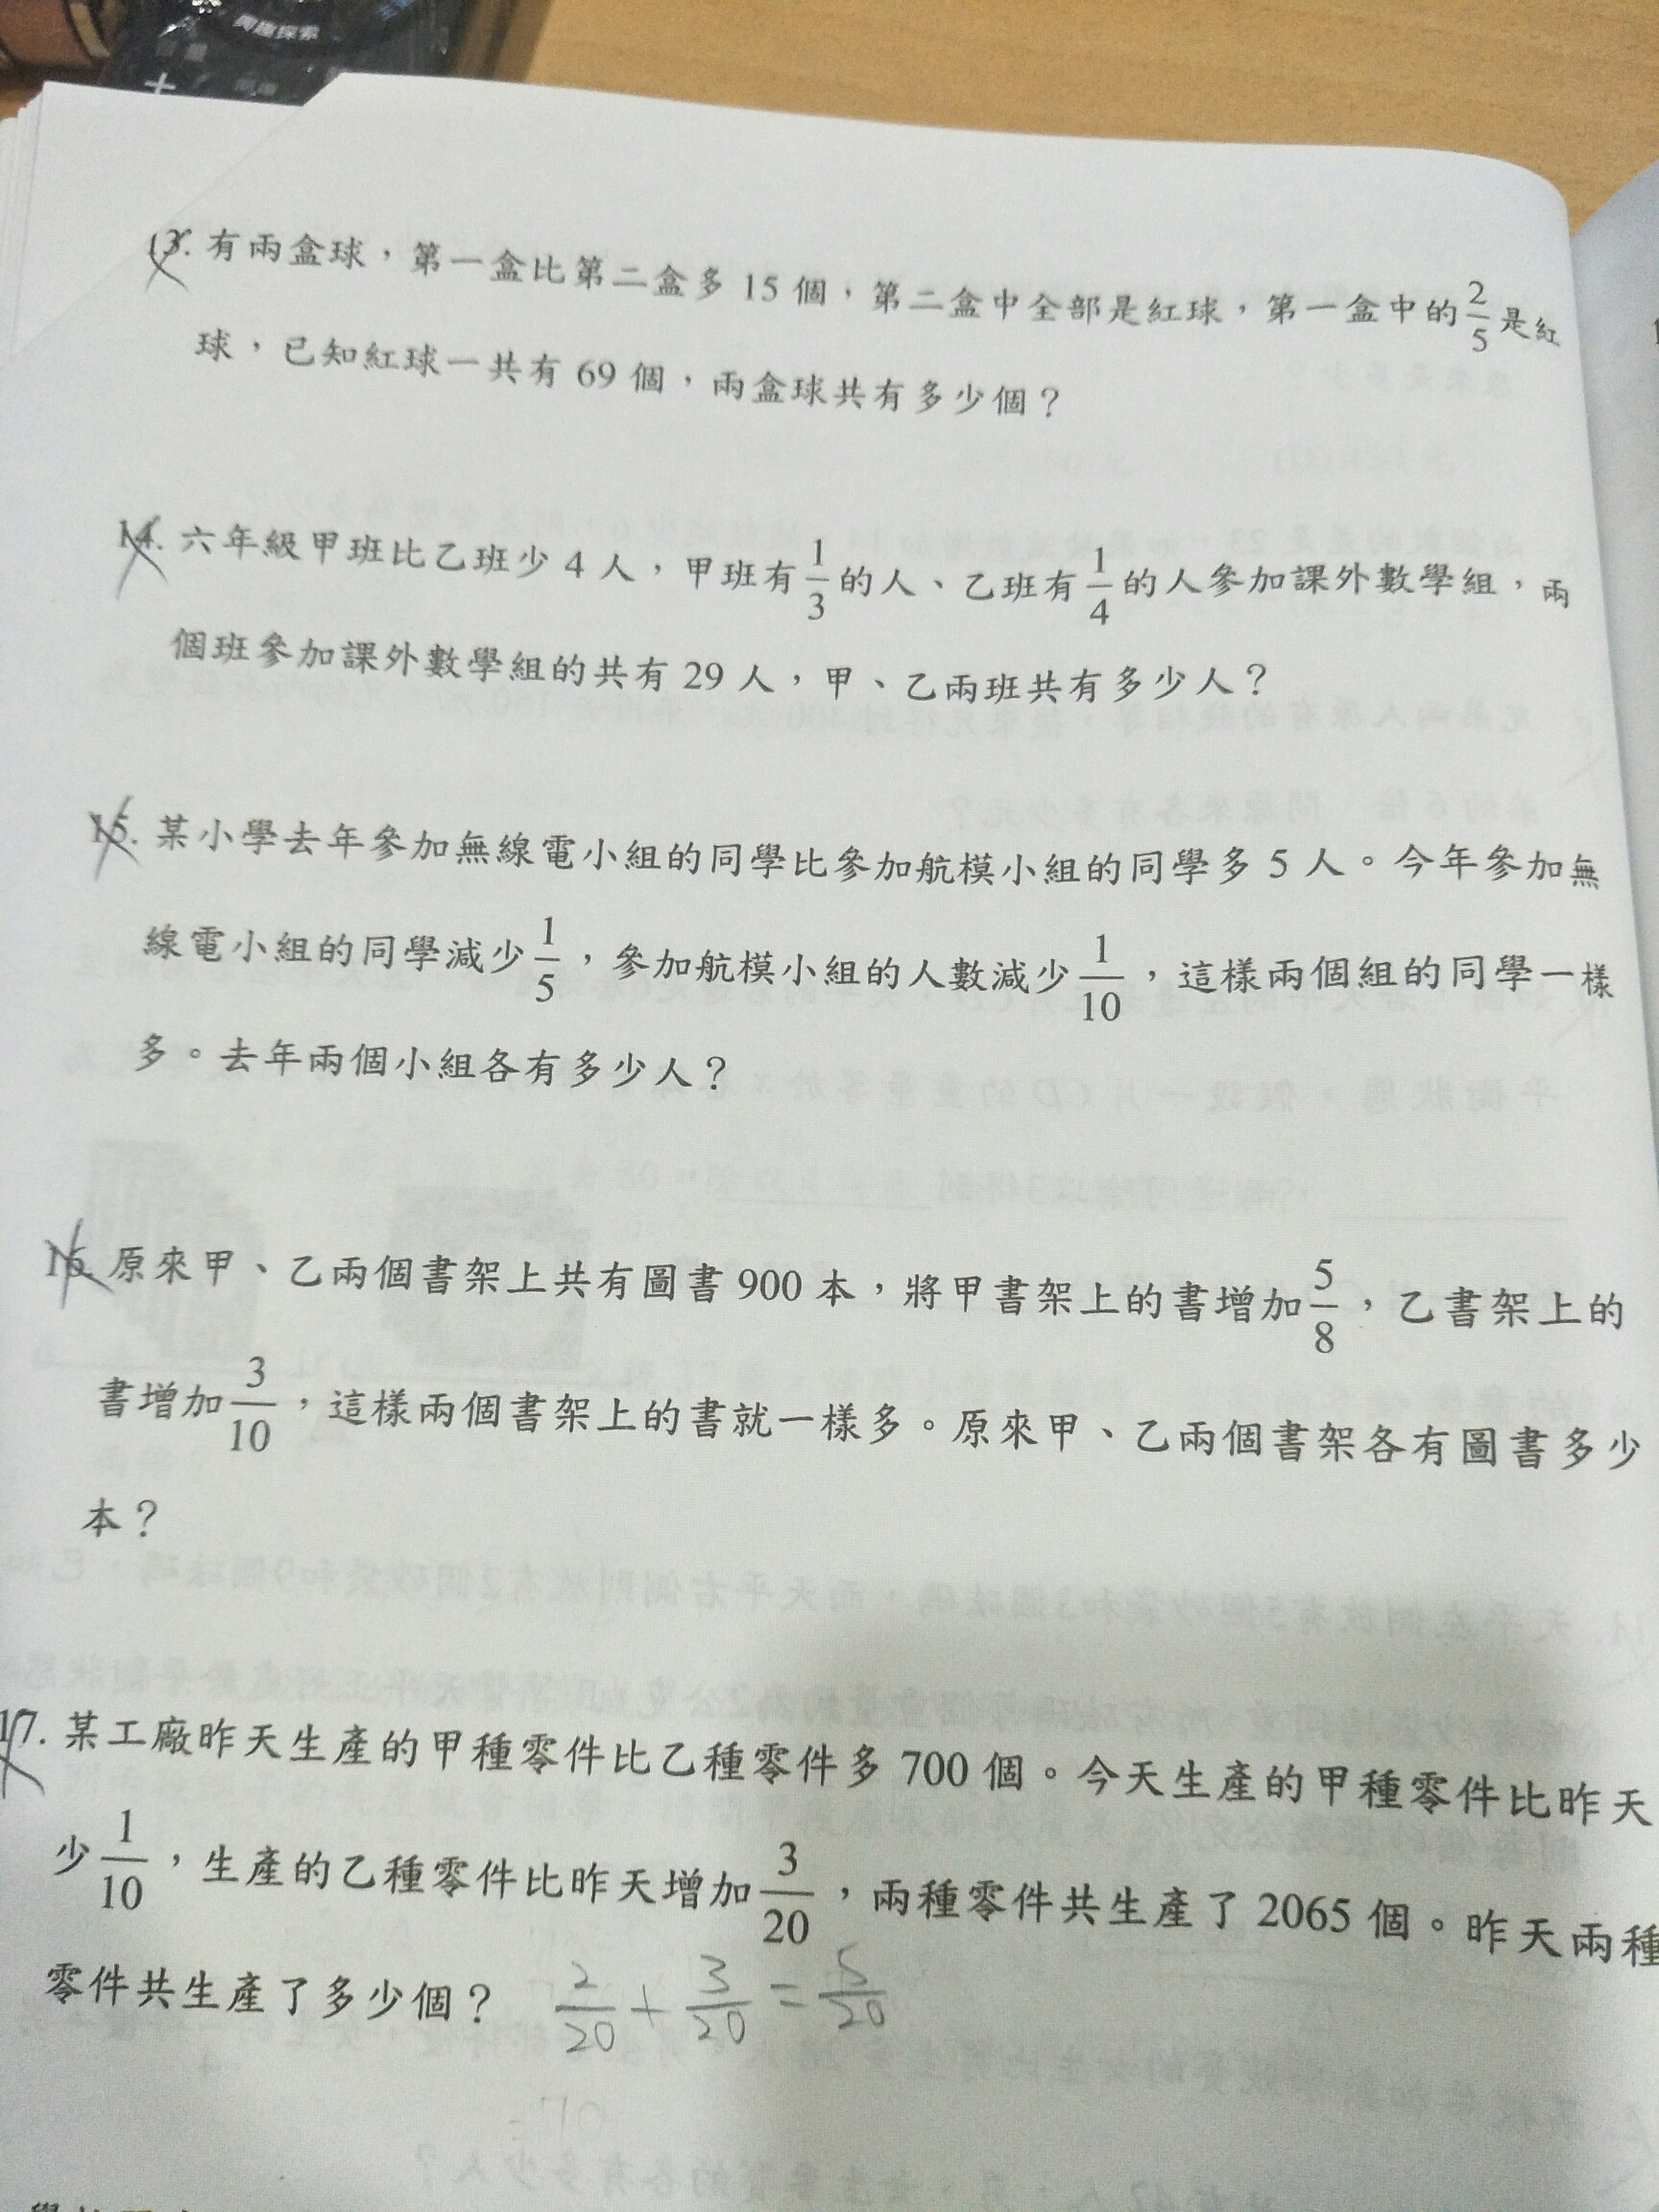 興趣探索
13. 有兩盒球，第一盒比第二盒多 15 個，第二盒中全部是紅球，第一盒中的2/5是紅
球，已知紅球一共有 69 個，兩盒球共有多少個？
14. 六年級甲班比乙班少 4 人，甲班有1/3的人、乙班有1/4的人參加課外數學組，兩
個班參加課外數學組的共有 29 人，甲、乙兩班共有多少人？
15. 某小學去年參加無線電小組的同學比參加航模小組的同學多 5 人。今年參加無
線電小組的同學減少1/5，參加航模小組的人數減少1/10，這樣兩個組的同學一樣
多。去年兩個小組各有多少人？
16. 原來甲、乙兩個書架上共有圖書 900 本，將甲書架上的書增加5/8，乙書架上的
書增加3/10，這樣兩個書架上的書就一樣多。原來甲、乙兩個書架各有圖書多少
本？
17. 某工廠昨天生產的甲種零件比乙種零件多 700 個。今天生產的甲種零件比昨天
少1/10，生產的乙種零件比昨天增加3/20，兩種零件共生產了 2065 個。昨天兩種
零件共生產了多少個？ 2/20 + 3/20 = 5/20